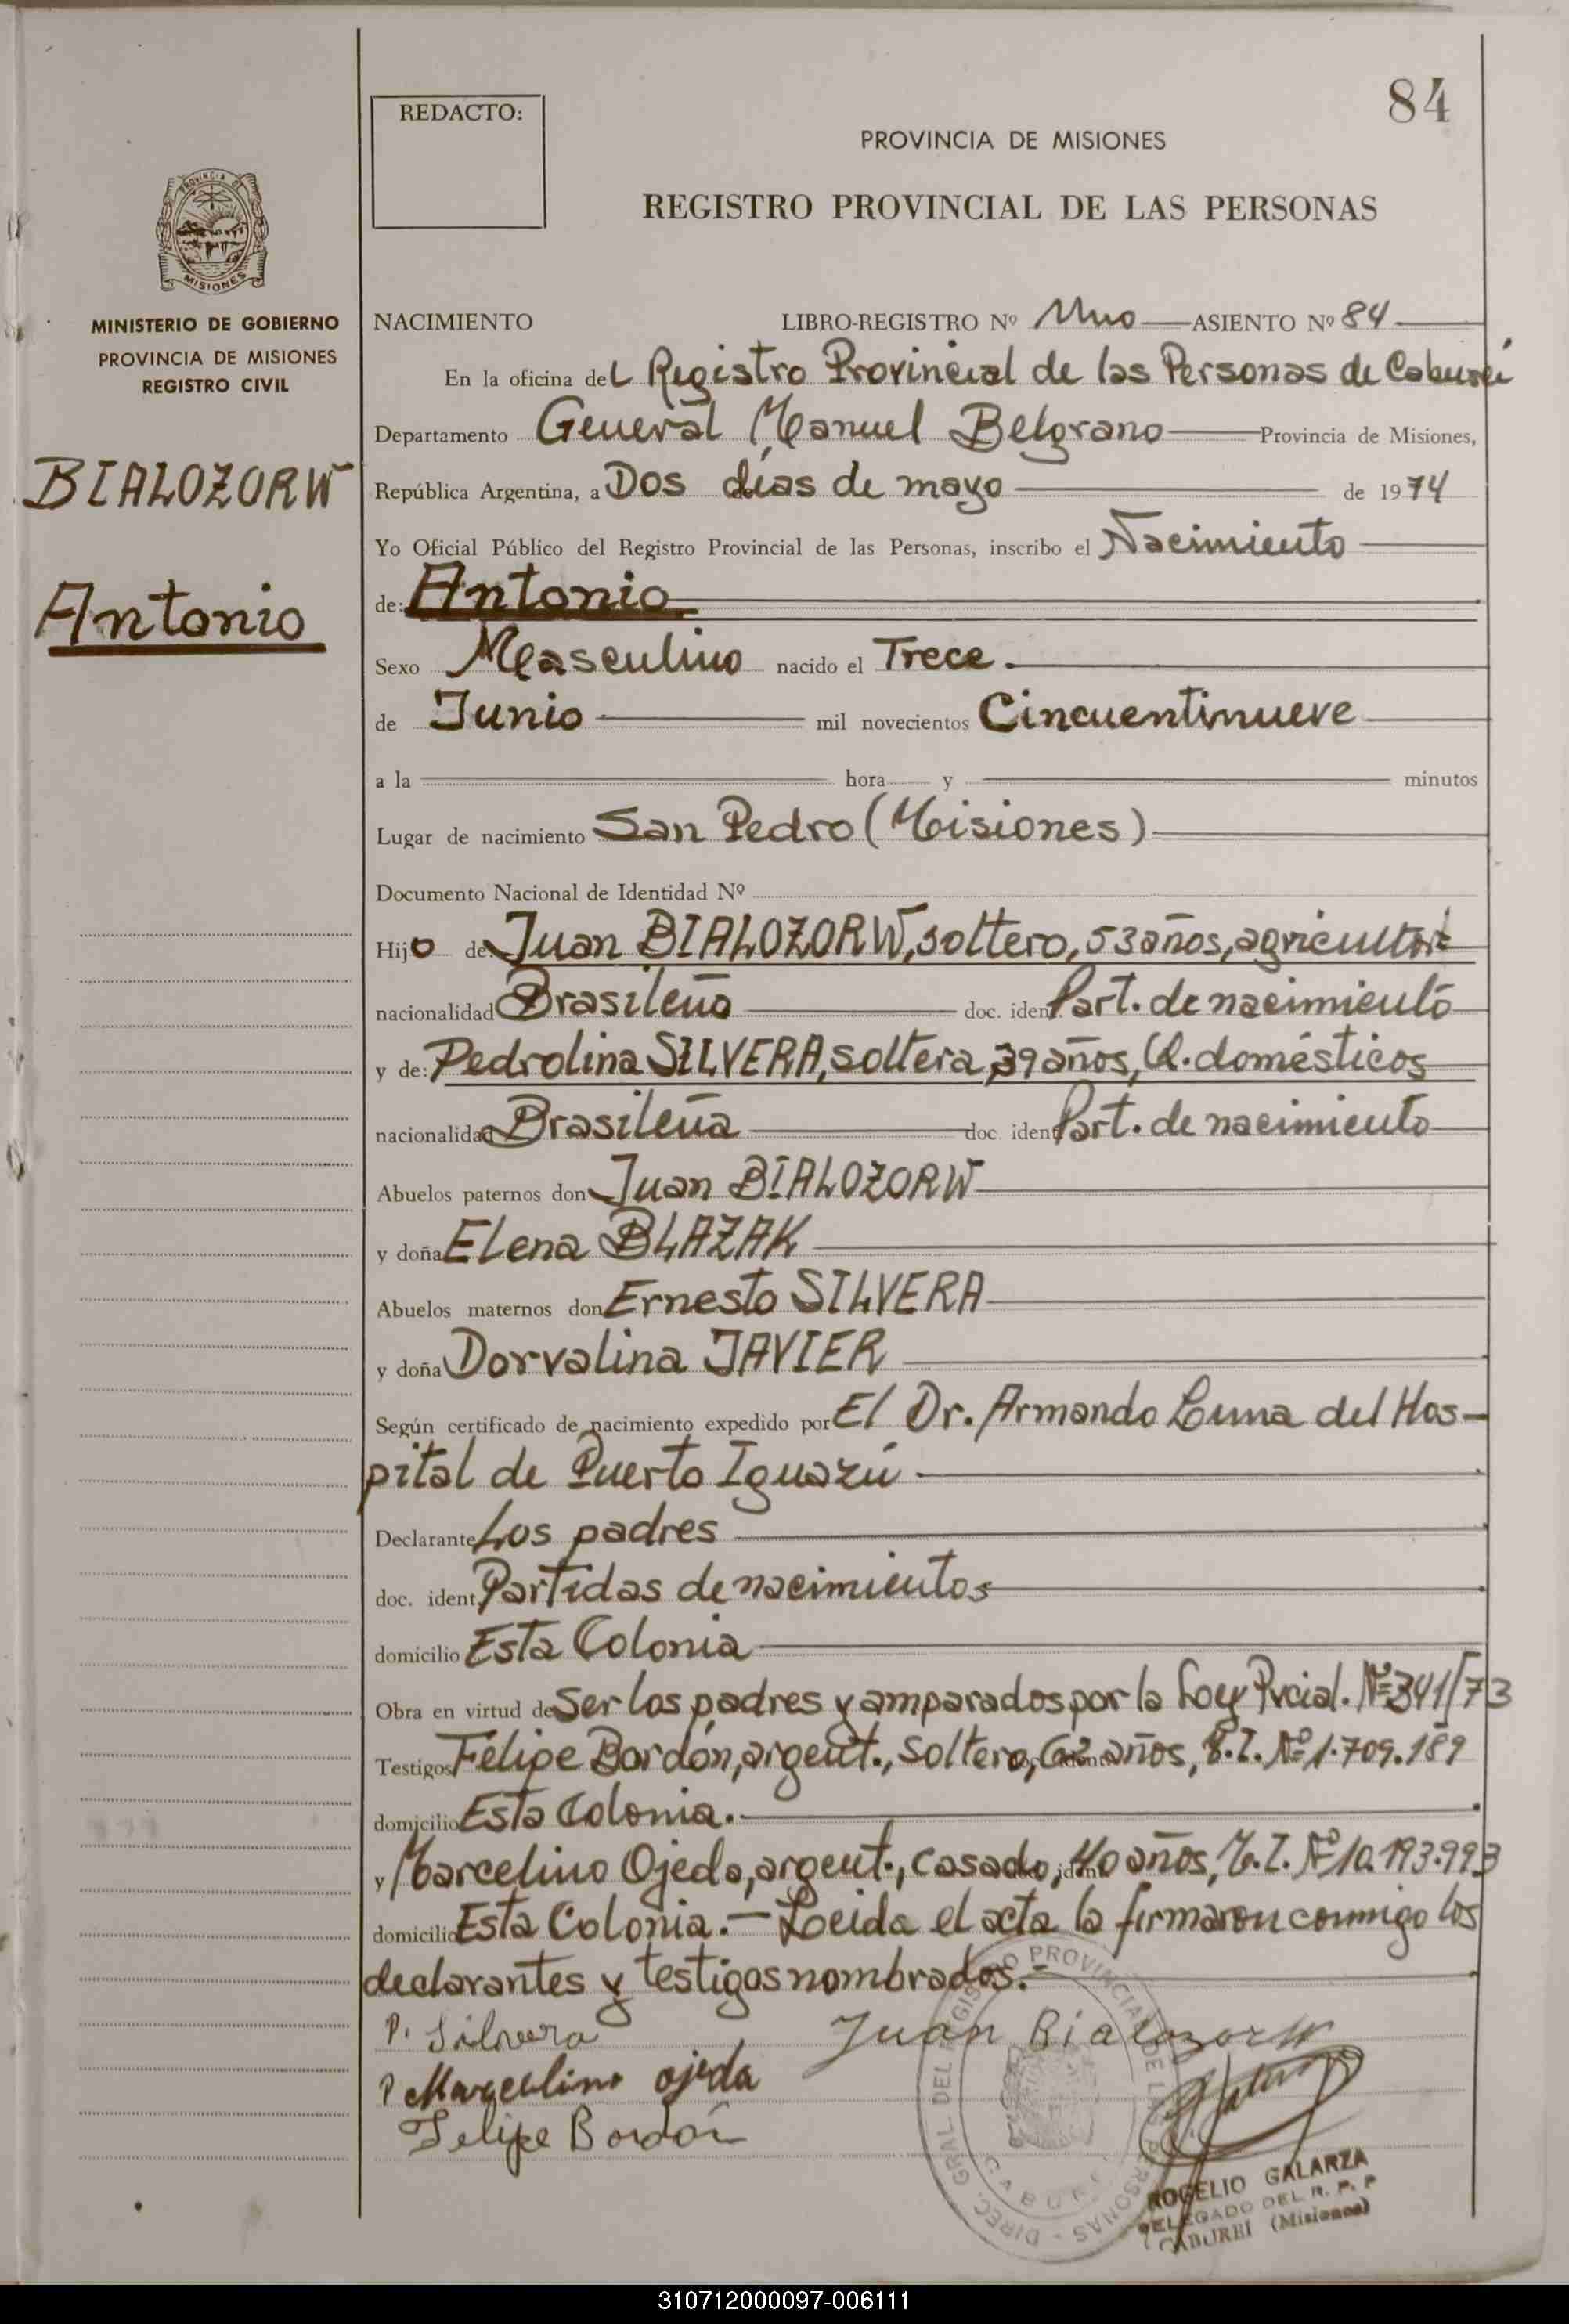 84
REDACTO:
PROVINCIA DE MISIONES
REGISTRO PROVINCIAL DE LAS PERSONAS
PROVINCIA DE
MISIONES
MINISTERIO DE GOBIERNO
PROVINCIA DE MISIONES
REGISTRO CIVIL
BIALOZORW
Antonio
NACIMIENTO LIBRO-REGISTRO Nº Uno ASIENTO Nº 84
En la oficina del Registro Provincial de las Personas de Cabureí
Departamento General Manuel Belgrano Provincia de Misiones,
República Argentina, a Dos días de mayo de 1974
Yo Oficial Público del Registro Provincial de las Personas, inscribo el Nacimiento
de: Antonio
Sexo Masculino nacido el Trece.
de Junio mil novecientos Cincuentinueve
a la hora y minutos
Lugar de nacimiento San Pedro (Misiones)
Documento Nacional de Identidad Nº
Hijo de: Juan BIALOZORW, soltero, 53 años, agricultor
nacionalidad Brasileña doc. iden Part. de nacimiento
y de: Pedrolina SILVERA, soltera, 39 años, Q. domésticos
nacionalidad Brasileña doc. ident Part. de nacimiento
Abuelos paternos don Juan BIALOZORW
y doña Elena BLAZAK
Abuelos maternos don Ernesto SILVERA
y doña Dorvalina JAVIER
Según certificado de nacimiento expedido por El Dr. Armando Luna del Hos-
pital de Puerto Iguazú.
Declarante Los padres
doc. ident. Partidas de nacimientos
domicilio Esta Colonia
Obra en virtud de Ser los padres y amparados por la Ley Pvcial. Nº 341/73
Testigos Felipe Bordón, argent., soltero, 62 años, Nº 1.709.189
domicilio Esta Colonia.
y Marcelino Ojeda, argent., casado, 40 años, M.I. Nº 10.193.993
domicilio Esta Colonia.- Leída el acta la firmaron conmigo los
declarantes y testigos nombrados.-
P. Silvera Juan Bialozorw
Marcelino ojeda
Felipe Bordón
DIREC. GRAL. DEL REGISTRO PROVINCIAL DE LAS PERSONAS
ROGELIO GALARZA
DELEGADO DEL R. P. P
CABUREI (Misiones)
310712000097-006111